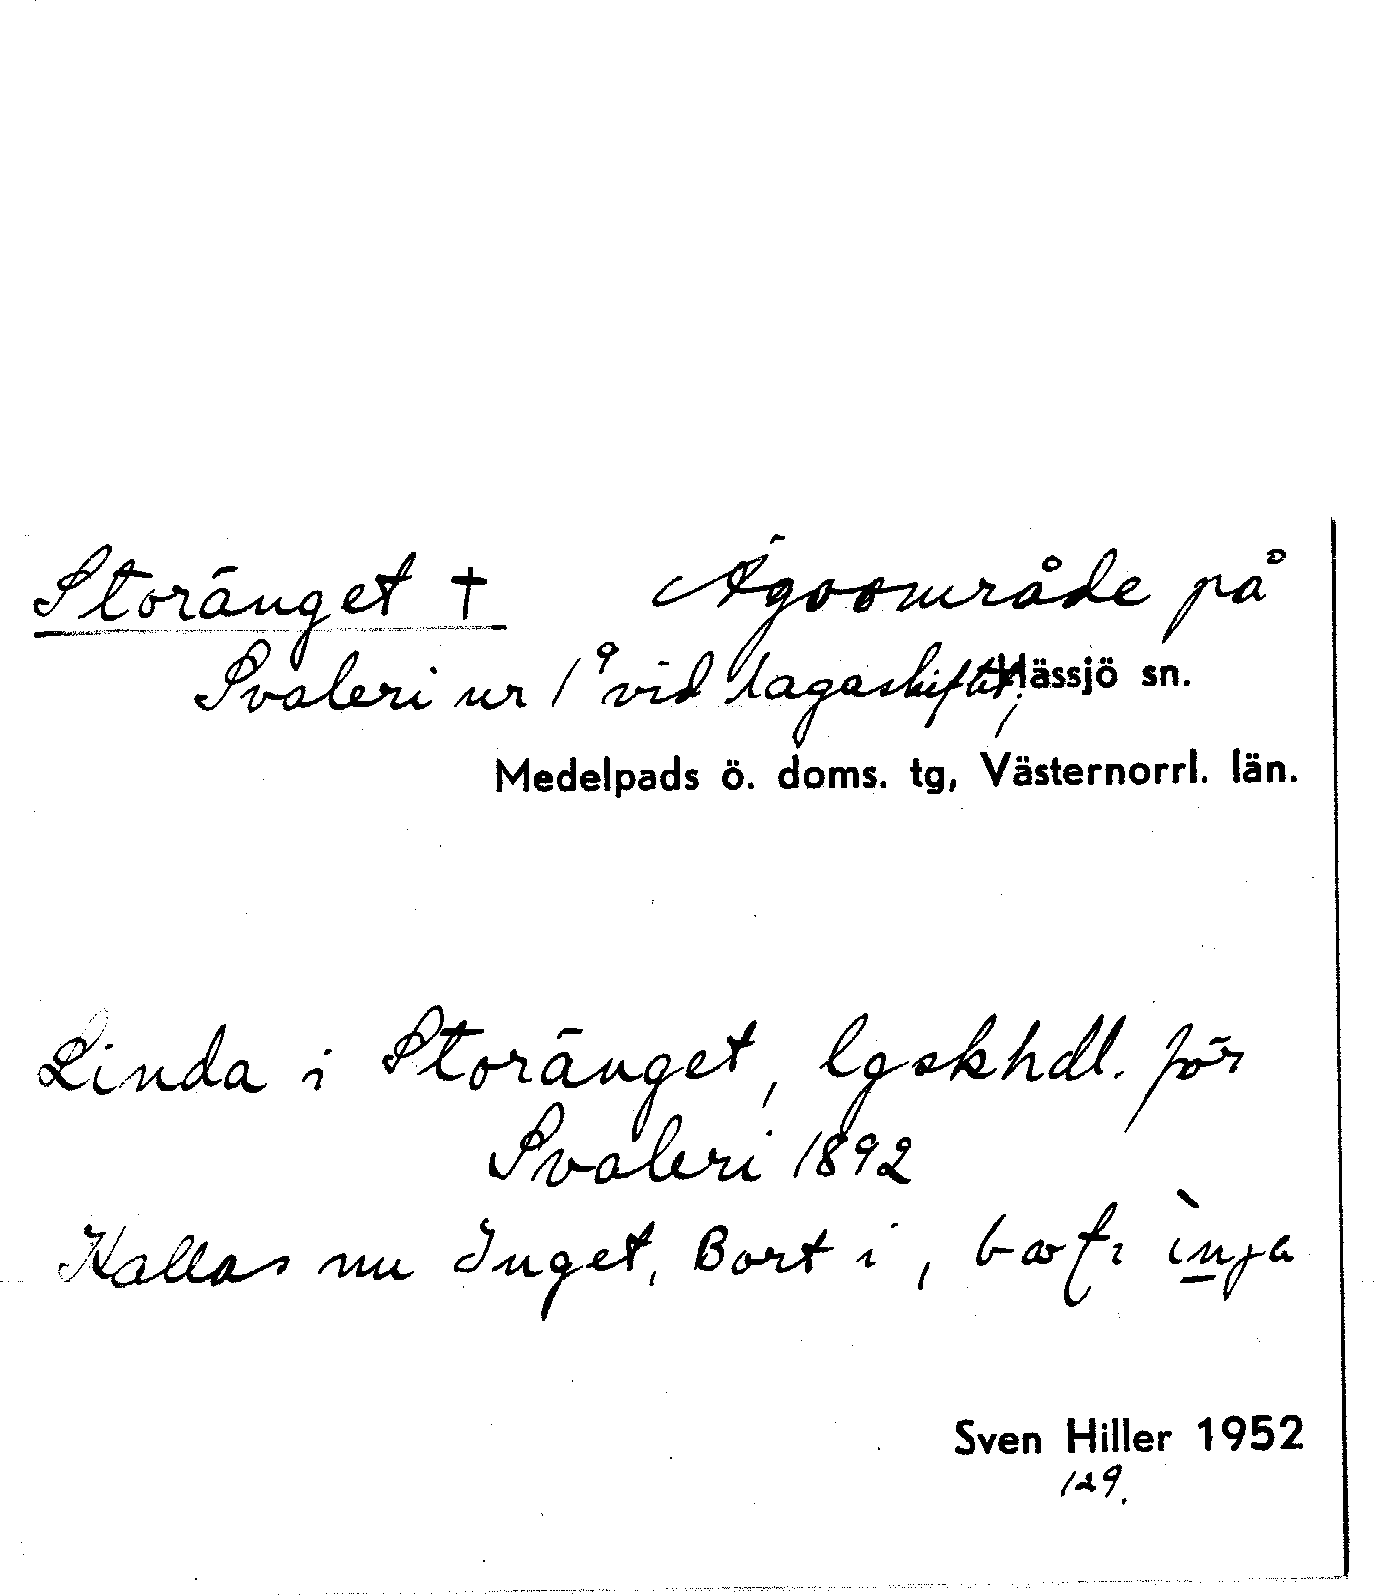 Storänget † Ägoområde på
Svaleri ur 1⁹ vid lagaskiftet,
Hässjö sn.
Medelpads ö. doms. tg, Västernorrl. län.
Linda i Storänget, lgskhdl. för
Svaleri 1892
Kallas nu Inget, Bort i,
Sven Hiller 1952
129.